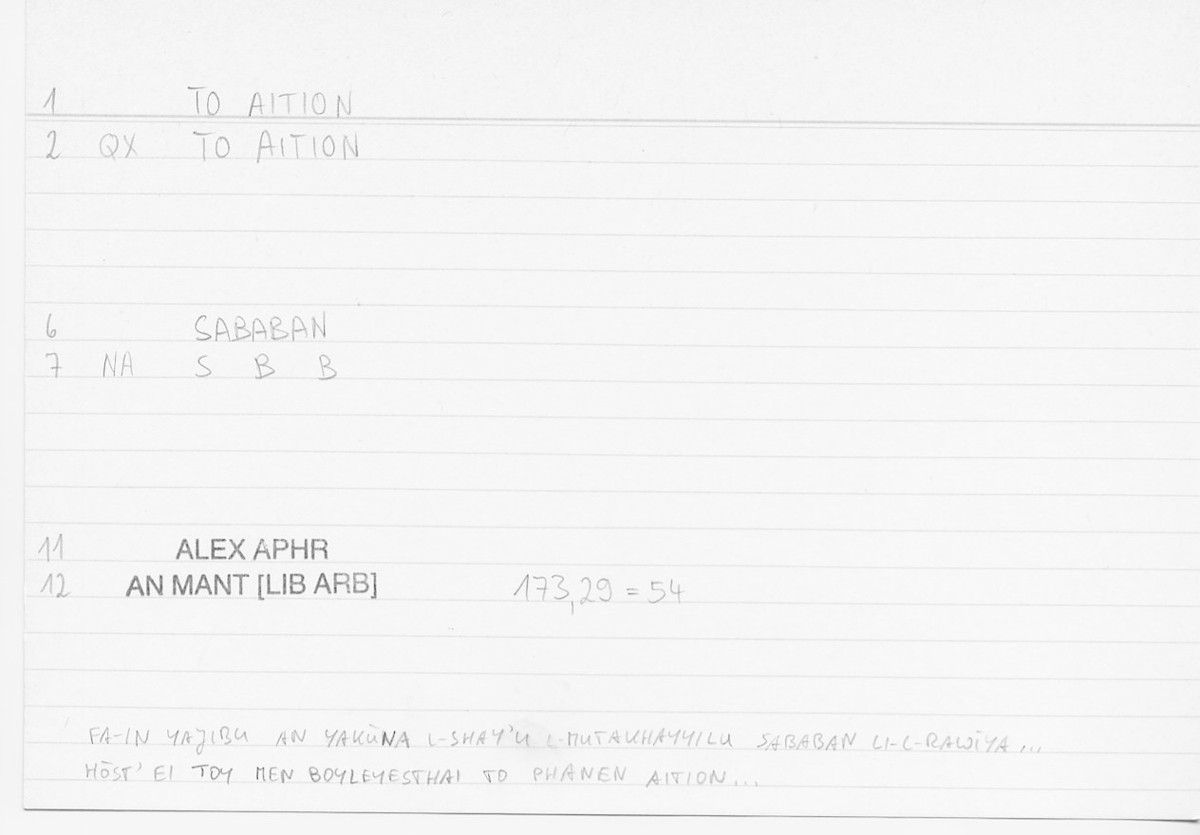 1 TO AITION
2 QX TO AITION
6 SABABAN
7 NA S B B
11 ALEX APHR
12 AN MANT [LIB ARB] 173,29 = 54
FA-IN YAJIBU AN YAKŪNA L-SHAY'U L-MUTAKHAYYILU SABABAN LI-L-RAWĪYA...
HŌST' EI TOY MEN BOYLEYESTHAI TO PHANEN AITION...